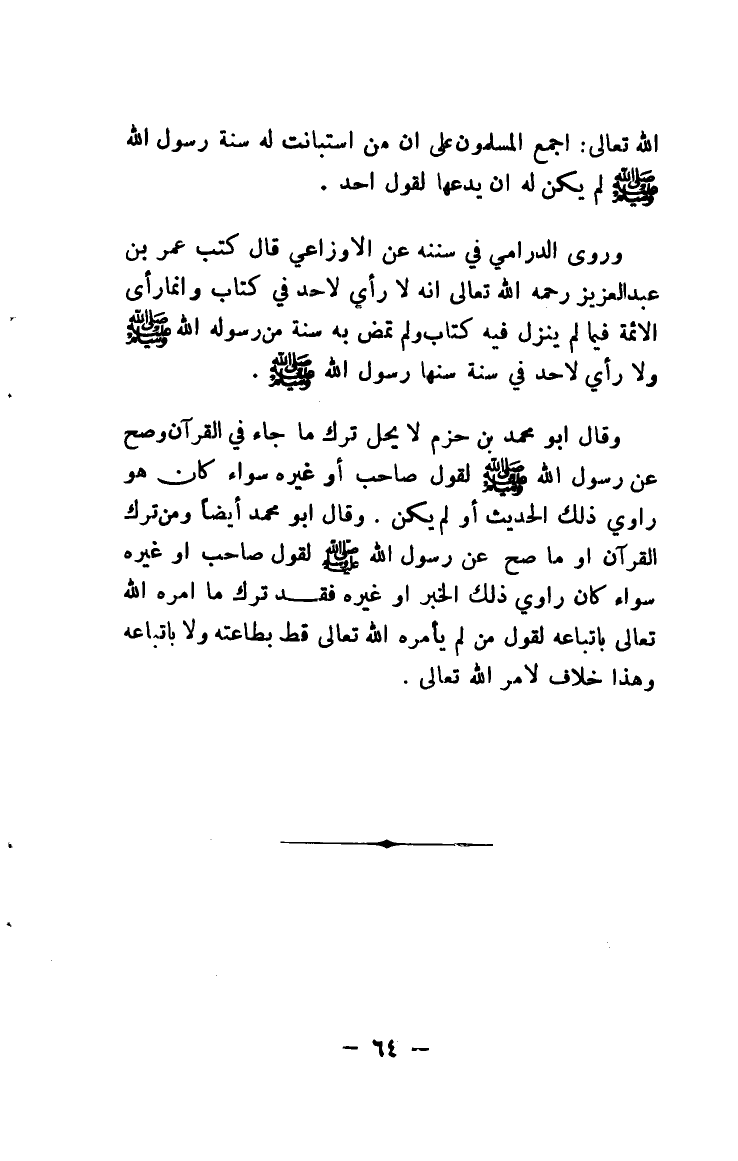 الله تعالى: اجمع المسلمون على ان من استبانت له سنة رسول الله
ﷺ لم يكن له ان يدعها لقول احد .
وروى الدرامي في سننه عن الاوزاعي قال كتب عمر بن
عبدالعزيز رحمه الله تعالى انه لا رأي لاحد في كتاب وانما رأى
الائمة فيما لم ينزل فيه كتاب ولم تمض به سنة من رسوله الله ﷺ
ولا رأي لاحد في سنة سنها رسول الله ﷺ .
وقال ابو محمد بن حزم لا يحل ترك ما جاء في القرآن وصح
عن رسول الله ﷺ لقول صاحب أو غيره سواء كان هو
راوي ذلك الحديث أو لم يكن . وقال ابو محمد أيضاً ومن ترك
القرآن او ما صح عن رسول الله ﷺ لقول صاحب او غيره
سواء كان راوي ذلك الخبر او غيره فقد ترك ما امره الله
تعالى باتباعه لقول من لم يأمره الله تعالى قط بطاعته ولا باتباعه
وهذا خلاف لامر الله تعالى .
— ٦٤ —